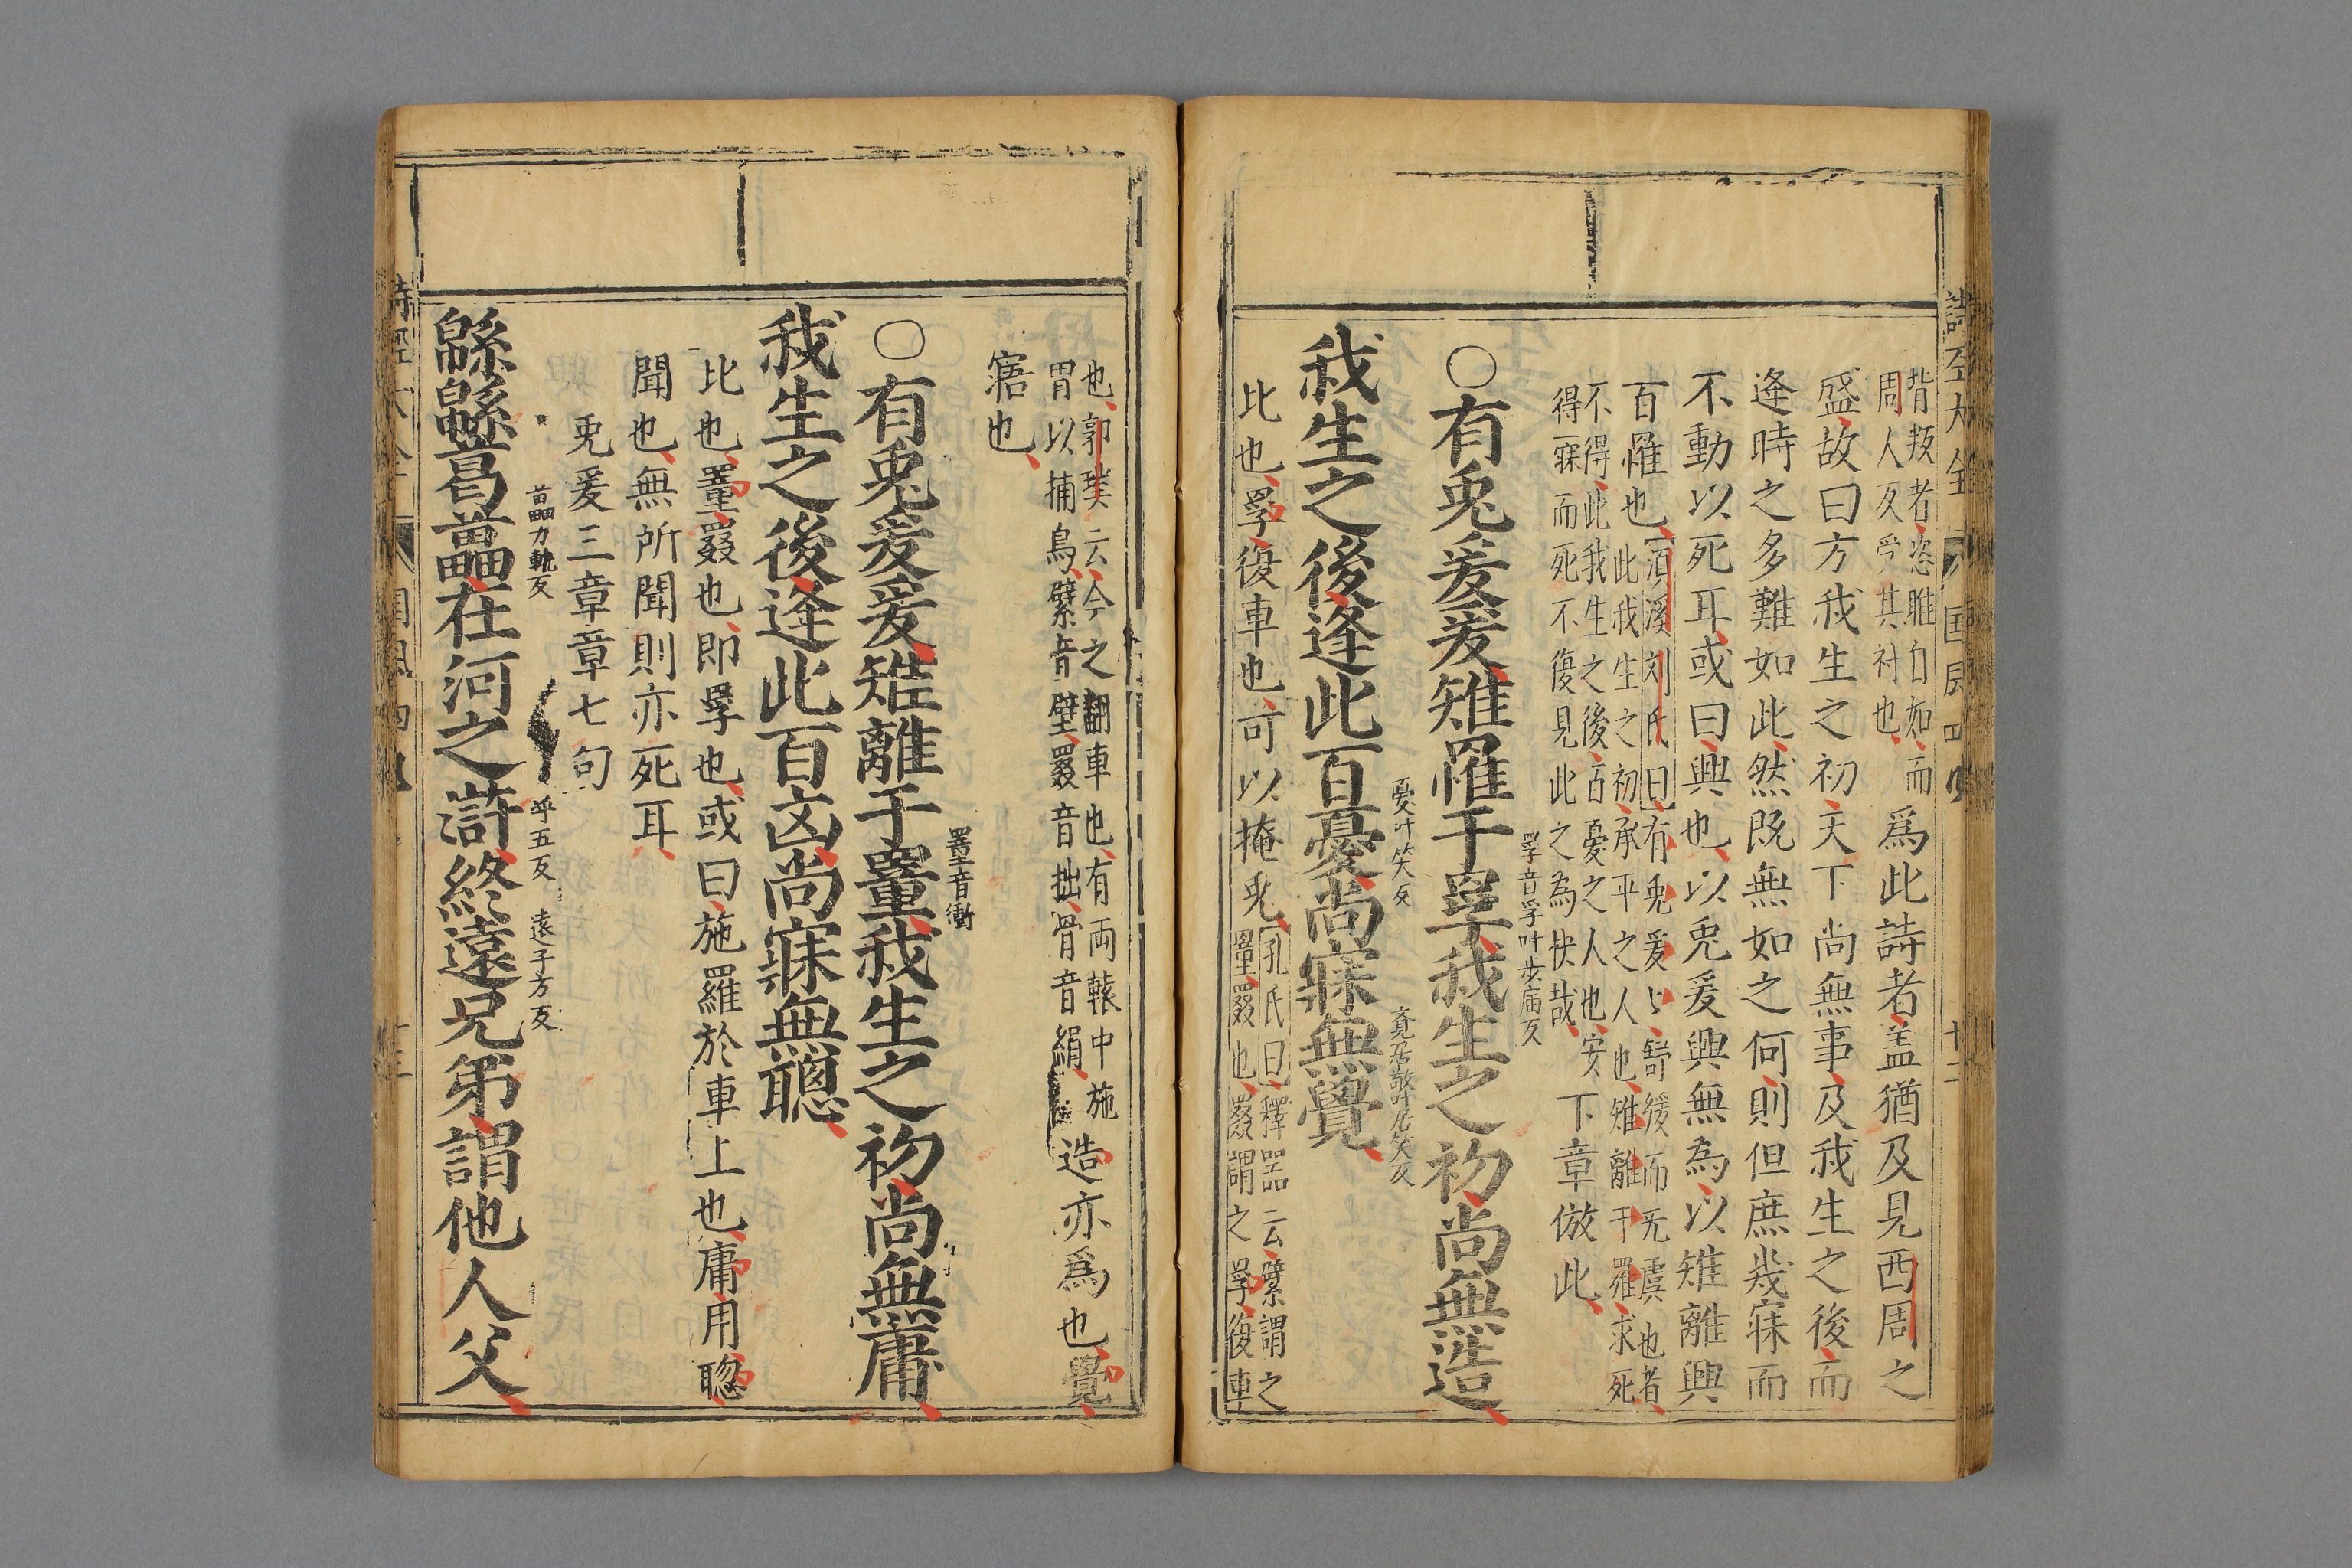 背叛者恣睢自如而
周人反受其衬也
爲此詩者盖猶及見西周之
盛故曰方我生之初天下尚無事及我生之後而
逢時之多難如此然既無如之何則但庶㡬寐而
不動以死耳或曰興也以兎爰興無為以雉離興
百罹也
湏溪刘氏曰有兎爰〻舒緩而无虞也者
此我生之初承平之人也雉離于羅求死
不得此我生之後百憂之人也安
得一寐而死不復見此之為快哉
下章倣此
罦音孚叶步庙反
○有兎爰爰雉罹于罦我生之初尚無造
憂叶笑反
覺居敎叶居笑反
我生之後逢此百憂尚寐無覺
比也罦復車也可以掩兎
孔氏曰釋器云繴謂之
罿罬也罬謂之罦復車
也郭璞云今之翻車也有両轅中施
罥以捕鳥繴音壁罬音拙罥音絹
造亦爲也覺
寤也
罿音衝
○有兎爰爰雉離于罿我生之初尚無庸
我生之後逢此百凶尚寐無聰
比也罿罬也即罦也或曰施羅於車上也庸用聦
聞也無所聞則亦死耳
兎爰三章章七句
藟力軌反
乎五反
遠于方反
緜緜葛藟在河之滸終遠兄弟謂他人父